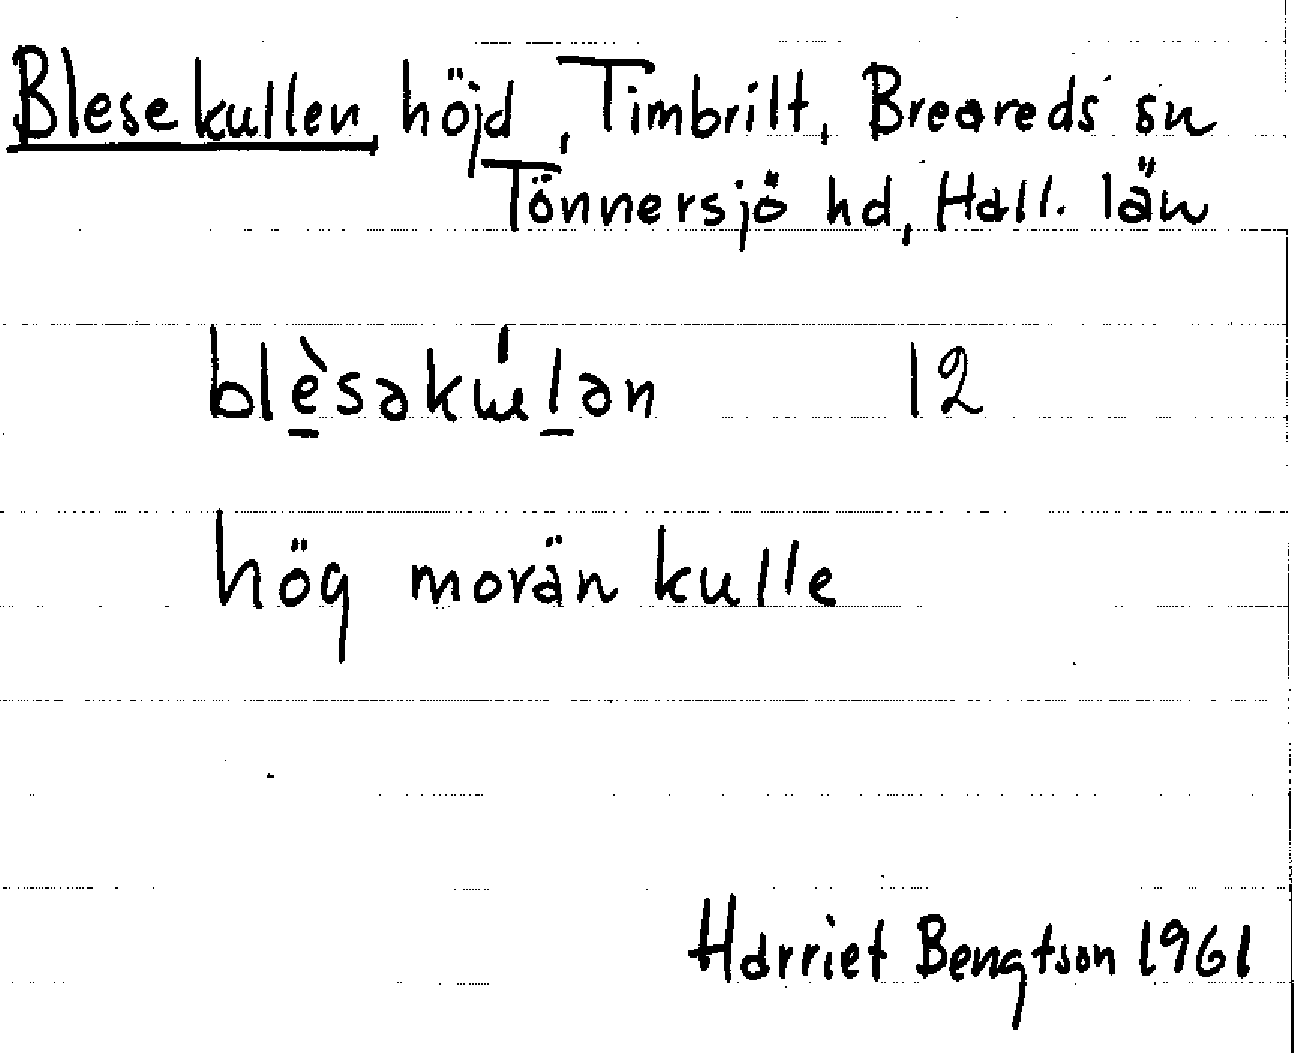 Blesekullen, höjd, Timbrilt, Breareds sn
Tönnersjö hd, Hall. län
blèsəkɯ́lən 12
hög morän kulle
Harriet Bengtson 1961